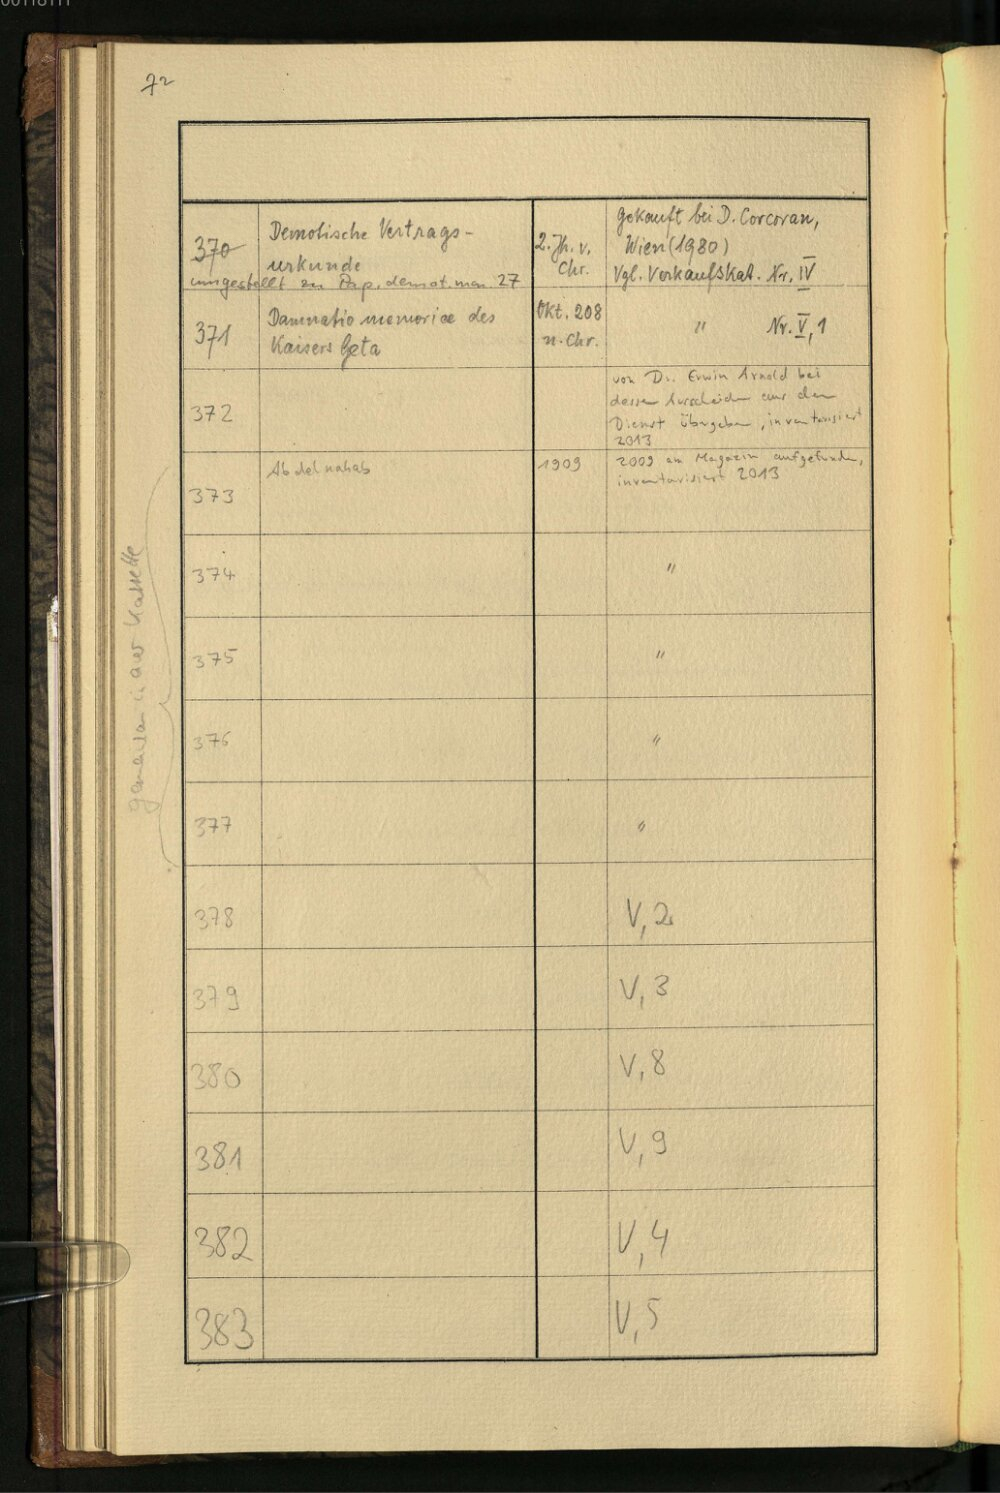 72
370 Demotische Vertrags- 2. Jh. v. Gekauft bei D. Corcoran,
urkunde Chr. Wien (1980)
umgestellt zu Pap. demot. mon. 27 Vgl. Verkaufskat. Nr. IV
371 Damnatio memoriae des Okt. 208 " Nr. V, 1
Kaisers Geta n. Chr.
372 von Dr. Erwin Arnold bei
dessen Ausscheiden aus dem
Dienst übergeben, inventarisiert
2013
373 Abdelwahab 1909 2009 im Magazin aufgefunden,
inventarisiert 2013
374 "
375 "
376 "
377 "
in der Kassette
378 V, 2
379 V, 3
380 V, 8
381 V, 9
382 V, 4
383 V, 5